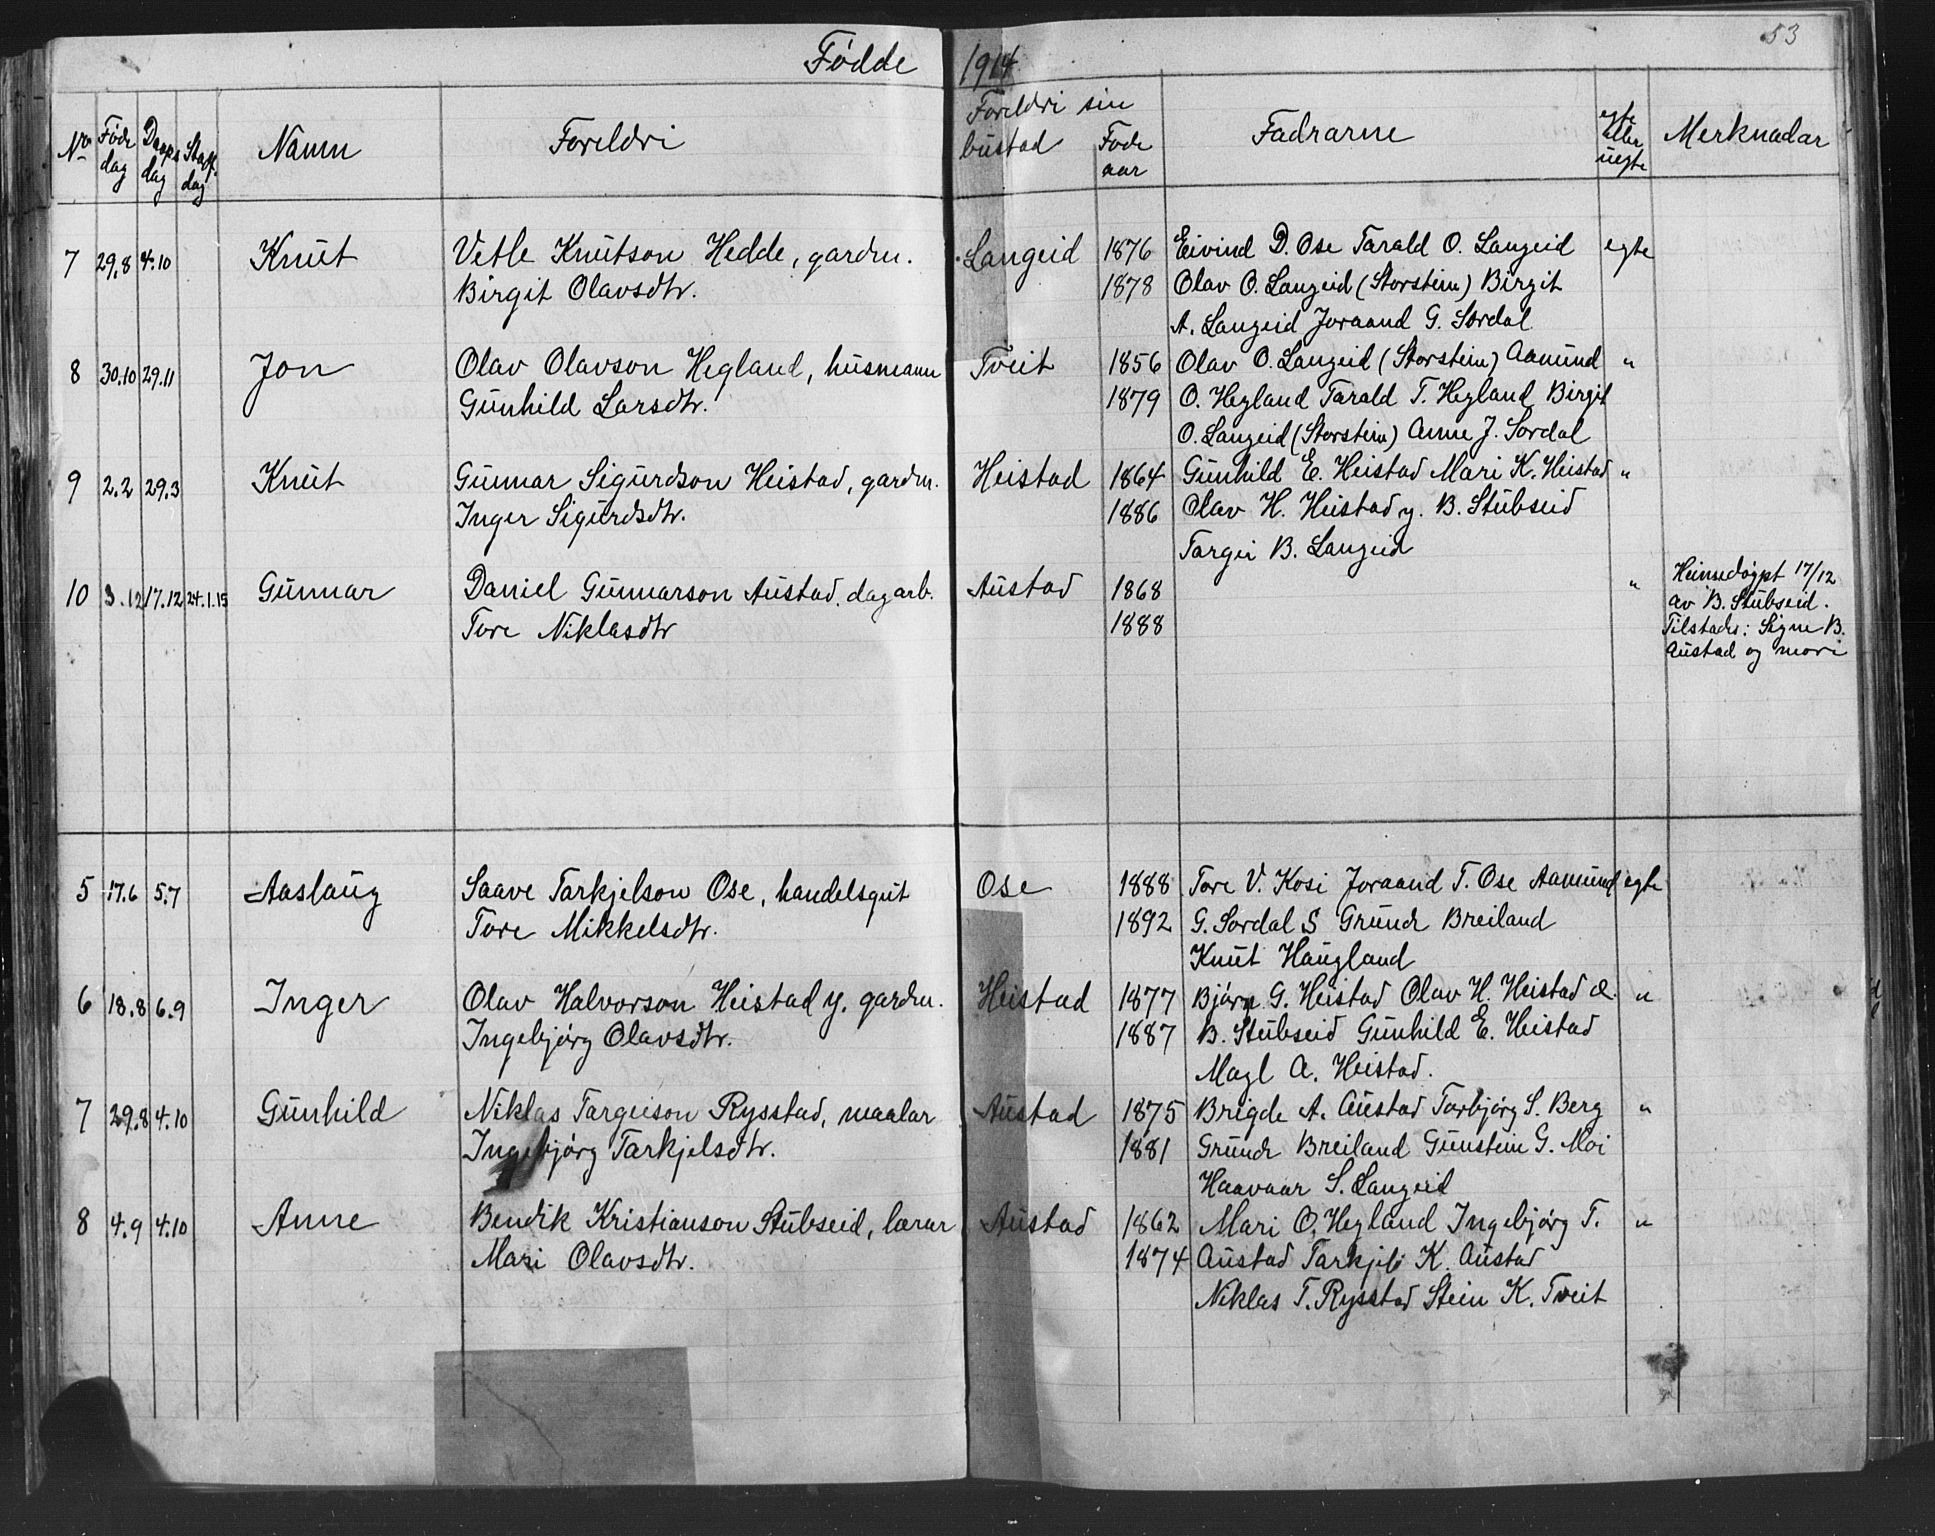 53
Fødde 1914
No Føde dag Daaps dag Stadf. dag Namn Foreldri Foreldri sin bustad Føde aar Fadrarne egte eller uegte Merknadar
7 29.8 4.10 Knut Vetle Knutson Hedde, gardm. Langeid 1876 Eivind D. Ose Tarald O. Langeid egte
Birgit Olavsdtr. 1878 Olav O. Langeid (Storstein) Birgit
A. Langeid Joraand G. Sordal
8 30.10 29.11 Jon Olav Olavson Hegland, husmann Tveit 1856 Olav O. Langeid (Storstein) Aamund "
Gunhild Larsdtr. 1879 O. Hegland Tarald T. Hegland Birgit
O. Langeid (Storstein) Anne J. Sordal
9 2.2 29.3 Knut Gunnar Sigurdson Heistad, gardm. Heistad 1864 Gunhild E. Heistad Mari K. Heistad "
Inger Sigurdsdtr. 1886 Olav H. Heistad y. B. Stubseid
Targei B. Langeid
10 3.12 17.12 24.1.15 Gunnar Daniel Gunnarson Austad, dagarb. Austad 1868 " Heimedøypt 17/12
Tore Niklasdtr 1888 av B. Stubseid.
Tilstades: Signe B.
Austad og mori
5 17.6 5.7 Aaslaug Saave Tarkjelson Ose, handelsgut Ose 1888 Tore V. Kosi Joraand T. Ose Aamund egte
Tore Mikkelsdtr. 1892 G. Sordal S Grunde Breiland
Knut Haugland
6 18.8 6.9 Inger Olav Halvorson Heistad y. gardm. Heistad 1877 Bjørn G. Heistad Olav H. Heistad e. "
Ingebjørg Olavsdtr. 1887 B. Stubseid Gunhild E. Heistad
Magl A. Heistad.
7 29.8 4.10 Gunhild Niklas Targeison Rysstad, maalar Austad 1875 Brigde A. Austad Torbjørg S. Berg "
Ingebjørg Tarkjelsdtr. 1881 Grunde Breiland Gunstein G. Moi
Haavaar S. Langeid
8 4.9 4.10 Anne Bendik Kristianson Stubseid, lærar Austad 1862 Mari O. Hegland Ingebjørg T. "
Mari Olavsdtr. 1874 Austad Tarkjel K. Austad
Niklas T. Rysstad Stein K. Tveit